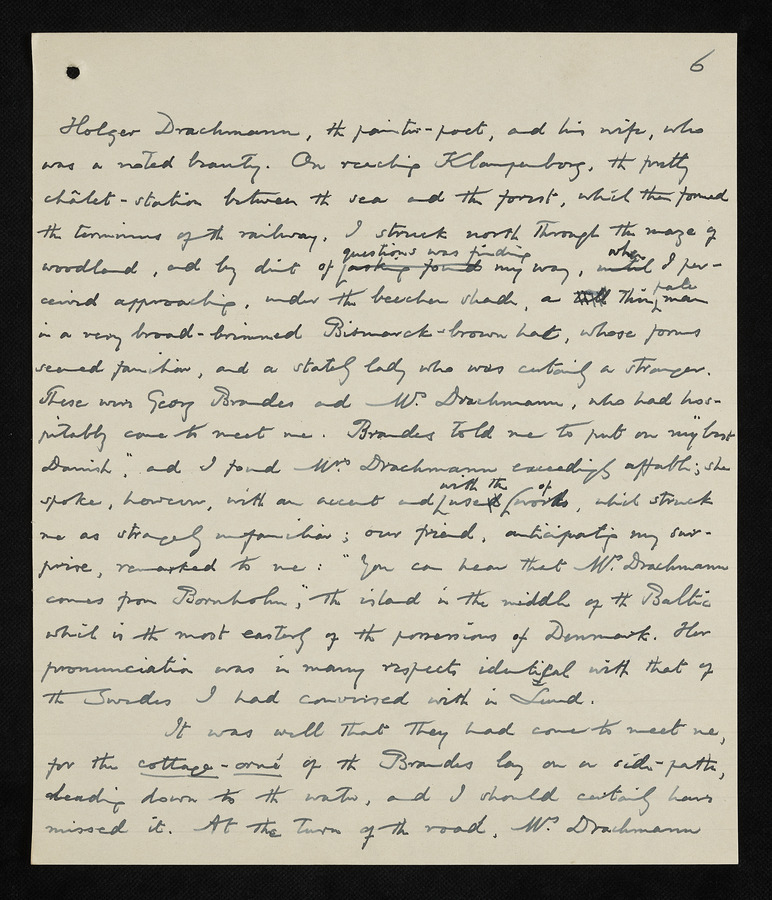 6
Holger Drachmann, the painter-poet, and his wife, who
was a noted beauty. On reaching Klampenborg, the pretty
châlet-station between the sea and the forest, which then formed
the terminus of the railway, I struck north through the maze of
woodland, and by dint of asking found questions was finding my way, until when I per-
ceived approaching, under the beechen shade, a thin, pale man
in a very broad-brimmed Bismarck-brown hat, whose form
seemed familiar, and a stately lady who was certainly a stranger.
These were Georg Brandes and Mrs Drachmann, who had hos-
pitably come to meet me. Brandes told me to put on my "best
Danish", and I found Mrs Drachmann exceedingly affable; she
spoke, however, with an accent and with the use of words, which struck
me as strangely unfamiliar; our friend, anticipating my sur-
prise, remarked to me: "You can hear that Mrs Drachmann
comes from Bornholm", the island in the middle of the Baltic
which is the most easterly of the possessions of Denmark. Her
pronunciation was in many respects identical with that of
the Swedes I had conversed with in Lund.
It was well that they had come to meet me,
for the cottage-orné of the Brandes lay on a side-path,
leading down to the water, and I should certainly have
missed it. At the turn of the road, Mrs Drachmann